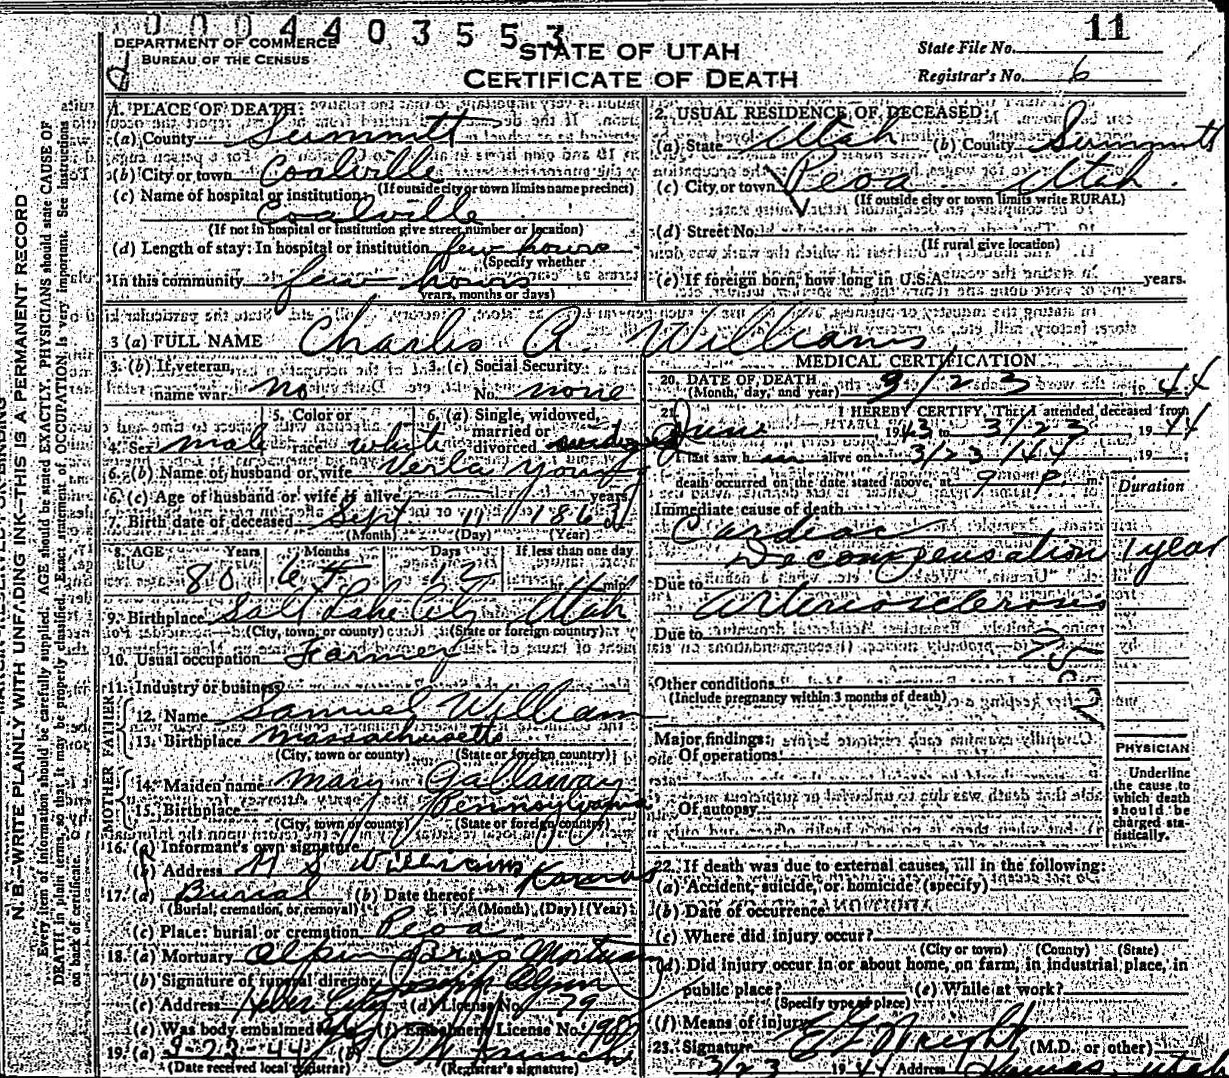 0004403553
11
DEPARTMENT OF COMMERCE
BUREAU OF THE CENSUS
STATE OF UTAH
CERTIFICATE OF DEATH
State File No.
Registrar's No. 6
N. B.—WRITE PLAINLY WITH UNFADING INK—THIS IS A PERMANENT RECORD
Every item of information should be carefully supplied. AGE should be stated EXACTLY. PHYSICIANS should state CAUSE OF
DEATH in plain terms, so that it may be properly classified. Exact statement of OCCUPATION is very important. See instructions
on back of certificate.
1. PLACE OF DEATH:
(a) County Summitt
(b) City or town Coalville
(If outside city or town limits name precinct)
(c) Name of hospital or institution:
Coalville
(If not in hospital or institution give street number or location)
(d) Length of stay: In hospital or institution few hours
(Specify whether
In this community few hours
years, months or days)
2. USUAL RESIDENCE OF DECEASED:
(a) State Utah (b) County Summitt
(c) City or town Peoa Utah
(If outside city or town limits write RURAL)
(d) Street No.
(If rural give location)
(e) If foreign born, how long in U.S.A. years.
3 (a) FULL NAME Charles A. Williams
3. (b) If veteran, 3. (c) Social Security
name war no No. none
4. Sex male 5. Color or race white 6. (a) Single, widowed, married or divorced
6. (b) Name of husband or wife Verla Young
6. (c) Age of husband or wife if alive years
7. Birth date of deceased Sept 11 1863
(Month) (Day) (Year)
8. AGE Years Months Days If less than one day
80 6 12 hr. min.
9. Birthplace Salt Lake City Utah
(City, town, or county) (State or foreign country)
10. Usual occupation Farmer
11. Industry or business
FATHER
12. Name Samuel William
13. Birthplace Massachusetts
(City, town or county) (State or foreign country)
MOTHER
14. Maiden name Mary Gallaway
15. Birthplace Pennsylvania
(City, town or county) (State or foreign country)
16. (a) Informant's own signature
(b) Address H S Williams Kamas
17. (a) Burial (b) Date thereof
(Burial, cremation, or removal) (Month) (Day) (Year)
(c) Place: burial or cremation Peoa
18. (a) Mortuary Olpin Bros Mortuary
(b) Signature of funeral director Joseph Olpin
(c) Address Heber City (d) License No. 79
(e) Was body embalmed (f) Embalmer's License No.
19. (a) 3-23-44 (b)
(Date received local registrar) (Registrar's signature)
MEDICAL CERTIFICATION
20. DATE OF DEATH
(Month, day, and year) 3/23 1944
21. I HEREBY CERTIFY, That I attended deceased from
June 1943 to 3/23 1944
I last saw him alive on 3/23/44 19
death occurred on the date stated above, at 9 P m.
Duration
Immediate cause of death
Cardiac
Decompensation 1 year
Due to Arteriosclerosis
Due to
Other conditions
(Include pregnancy within 3 months of death)
Major findings:
Of operations
Of autopsy
PHYSICIAN
Underline
the cause to
which death
should be
charged sta-
tistically.
22. If death was due to external causes, fill in the following:
(a) Accident, suicide, or homicide? (specify)
(b) Date of occurrence
(c) Where did injury occur?
(City or town) (County) (State)
(d) Did injury occur in or about home, on farm, in industrial place, in
public place? (e) While at work?
(Specify type of place)
(f) Means of injury
23. Signature (M.D. or other)
3/23 1944 Address Kamas, Utah